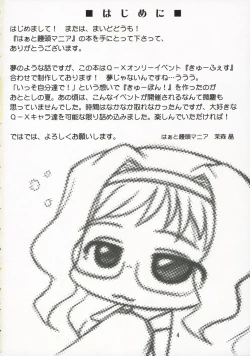 ■ はじめに ■
はじめまして！ または、まいどどうも！
『はぁと饅頭マニア』の本を手にとって下さって、
ありがとうございます。
夢のような話ですが、この本はQ－Xオンリーイベント『きゅーふぇす』
合わせで制作しております。 夢じゃないんですね…ううう。
「いっそ自分達で！」という想いで『きゅーぽん！』を作ったのが
おととしの夏。あの頃は、こんなイベントが開催されるなんて微塵も
思っていませんでした。時間はなかなか取れなかったんですが、大好きな
Q－Xキャラ達を可能な限り詰め込みました。楽しんでいただければ！
ではでは、よろしくお願いします。
はぁと饅頭マニア